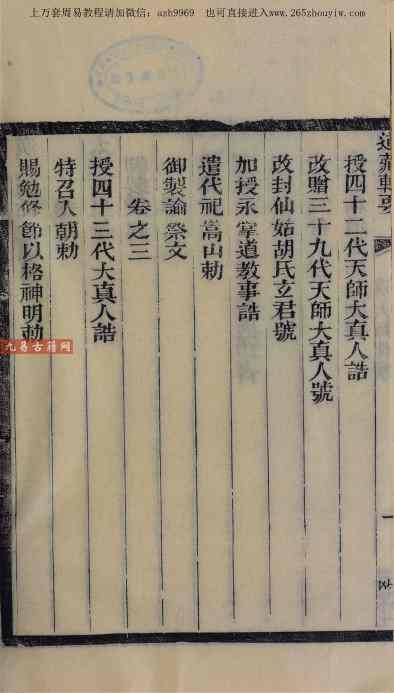 上万套周易教程请加微信：azh9969　也可直接进入www.265zhouyiw.com
道藏輯要
授四十二代天師大真人誥
改贈三十九代天師大真人號
改封仙姑胡氏玄君號
加授永掌道教事誥
遣代祀嵩山勅
御製諭祭文
卷之三
授四十三代大真人誥
特召入朝勅
賜勉修節以格神明勅
九易古籍网
一